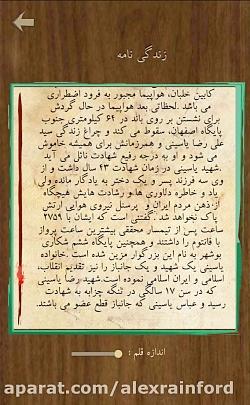 زندگی نامه
کابین خلبان، هواپیما مجبور به فرود اضطراری
می باشد .لحظاتی بعد هواپیما در حال گردش
برای نشستن بر روی باند در ۶۴ کیلومتری جنوب
پایگاه اصفهان، سقوط می کند و چراغ زندگی سید
علی رضا یاسینی و همرزمانش برای همیشه خاموش
می شود و او به درجه رفیع شهادت نائل می آید
.شهید یاسینی در زمان شهادت ۴۳ سال داشت و از
وی سه فرزند پسر و یک دختر به یادگار مانده ولی
یاد و خاطره دلاوری ها و رشادت هایش هیچگاه
از ذهن مردم ایران و پرسنل نیروی هوایی ارتش
پاک نخواهد شد .گفتنی است که ایشان با ۲۷۵۹
ساعت پس از تیمسار محققی بیشترین ساعت پرواز
با فانتوم را داشتند و همچنین پایگاه ششم شکاری
بوشهر به نام این بزرگوار مزین شده است .خانواده
یاسینی یک شهید و یک جانباز را نیز تقدیم انقلاب،
اسلامی و ایران اسلامی نموده است.شهید رضا یاسینی
که در سن ۱۷ سالگی در تنگه چزابه به شهادت
رسید و عباس یاسینی که جانباز قطع عضو می باشند.
اندازه قلم :
aparat.com/alexrainford